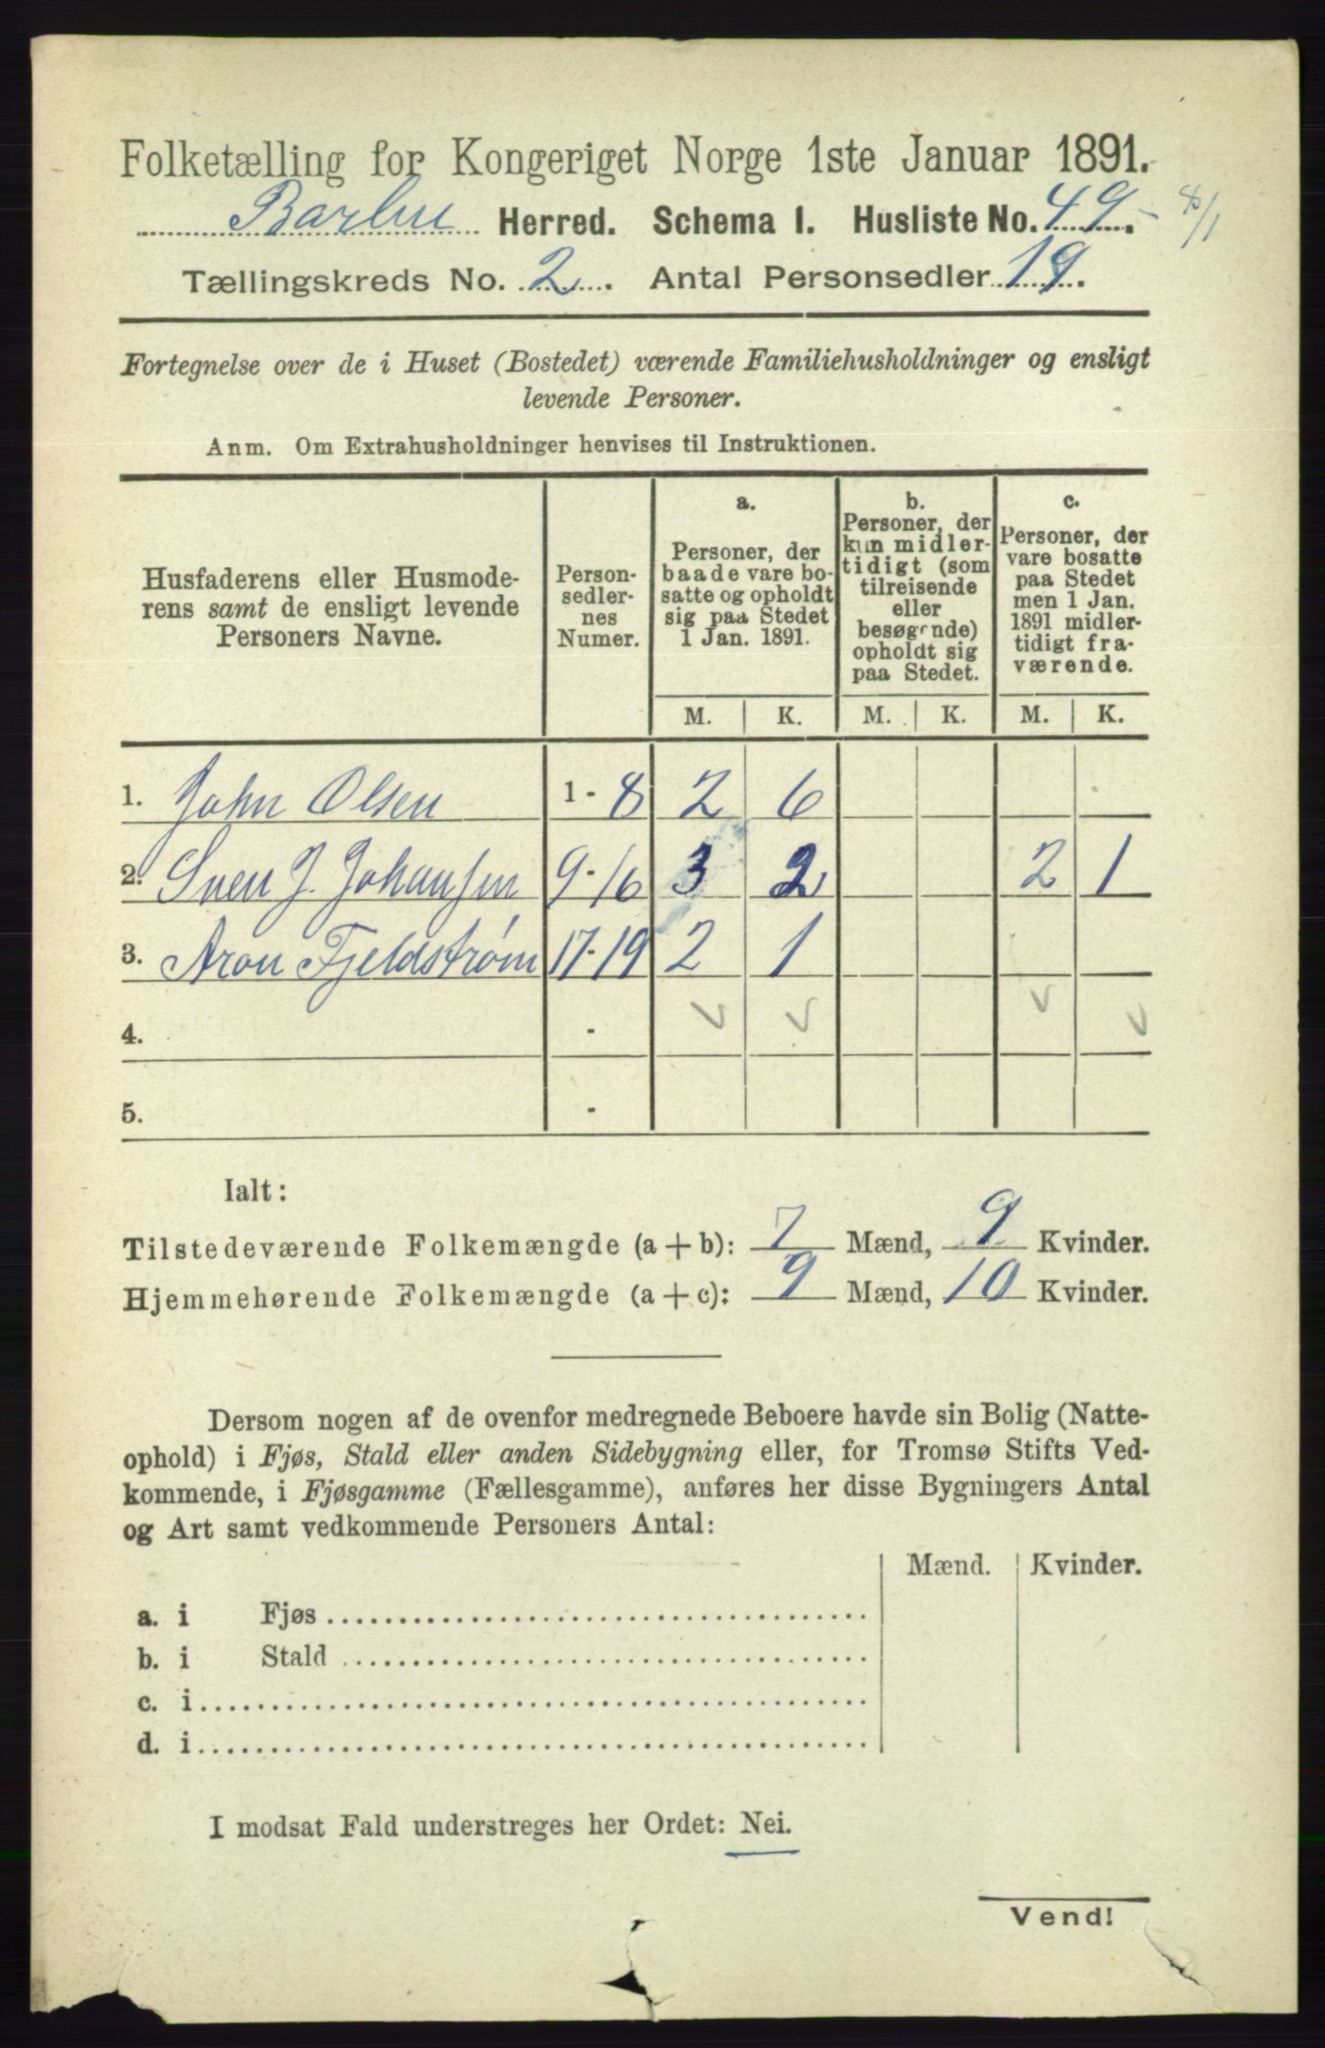 Folketælling for Kongeriget Norge 1ste Januar 1891.
Barbu Herred. Schema I. Husliste No. 49.
Tællingskreds No. 2. Antal Personsedler 19.
Fortegnelse over de i Huset (Bostedet) værende Familiehusholdninger og ensligt
levende Personer.
Anm. Om Extrahusholdninger henvises til Instruktionen.
Husfaderens eller Husmode-
rens samt de ensligt levende
Personers Navne.
Person-
sedler-
nes
Numer.
a.
Personer, der
baade vare bo-
satte og opholdt
sig paa Stedet
1 Jan. 1891.
b.
Personer, der
kun midler-
tidigt (som
tilreisende
eller
besøgende)
opholdt sig
paa Stedet.
c.
Personer, der
vare bosatte
paa Stedet
men 1 Jan.
1891 midler-
tidigt fra-
værende.
M. K. M. K. M. K.
1. John Olsen 1 - 8 2 6
2. Sven J. Johansen 9 - 16 3 2 2 1
3. Aron Fjeldstrøm 17 - 19 2 1
4. -
5. -
Ialt:
Tilstedeværende Folkemængde (a + b): 7 Mænd, 9 Kvinder.
Hjemmehørende Folkemængde (a + c): 9 Mænd, 10 Kvinder.
Dersom nogen af de ovenfor medregnede Beboere havde sin Bolig (Natte-
ophold) i Fjøs, Stald eller anden Sidebygning eller, for Tromsø Stifts Ved-
kommende, i Fjøsgamme (Fællesgamme), anføres her disse Bygningers Antal
og Art samt vedkommende Personers Antal:
Mænd. Kvinder.
a. i Fjøs
b. i Stald
c. i
d. i
I modsat Fald understreges her Ordet: Nei.
Vend!